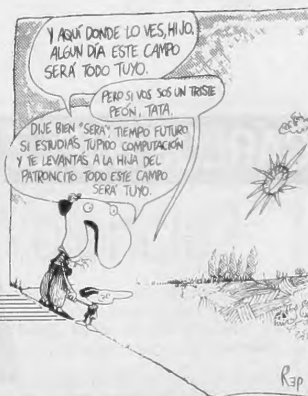 Y AQUÍ DONDE LO VES, HIJO,
ALGUN DÍA ESTE CAMPO
SERÁ TODO TUYO.
PERO SI VOS SOS UN TRISTE
PEÓN, TATA.
DIJE BIEN "SERÁ", TIEMPO FUTURO
SI ESTUDIÁS TUPIDO COMPUTACIÓN
Y TE LEVANTAS A LA HIJA DEL
PATRONCITO TODO ESTE CAMPO
SERÁ TUYO.
REP